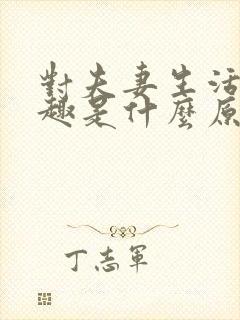 對夫妻生活
趣是什麼原
丁志軍